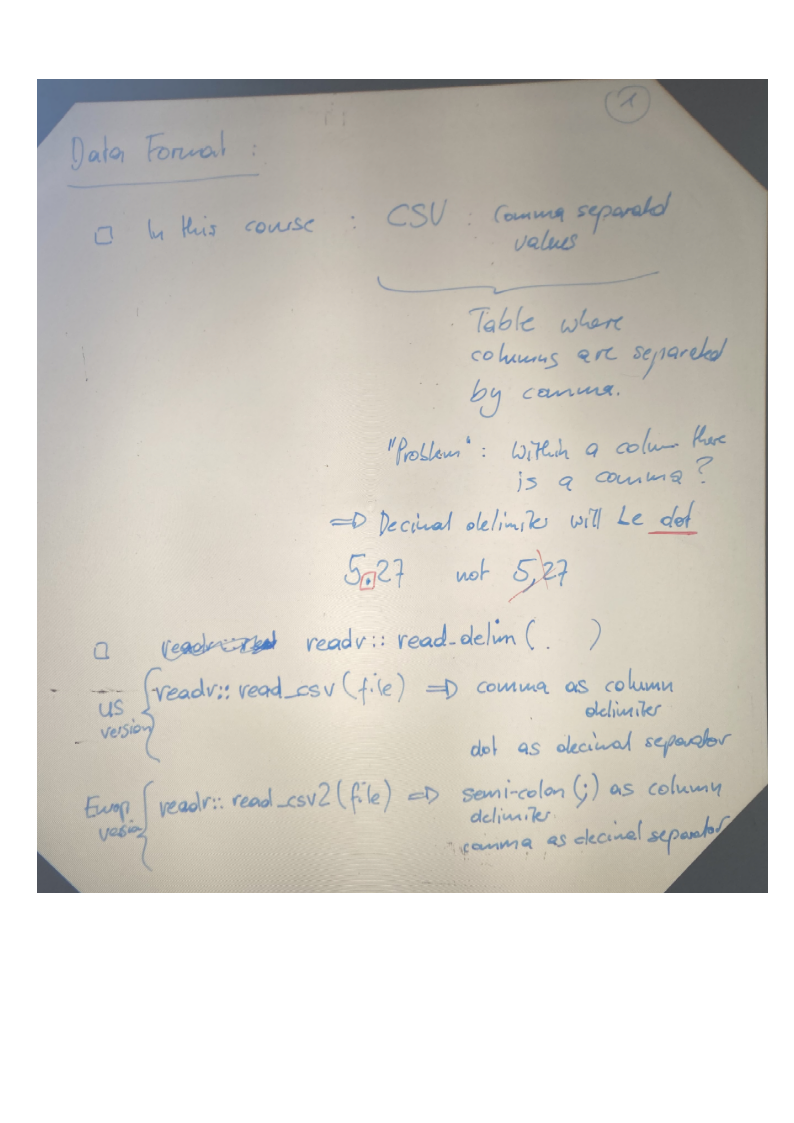 1
Data Format :
□ In this course : CSV : comma separated
values
Table where
columns are separated
by comma.
"Problem" : Within a column there
is a comma?
=> Decimal delimiter will be dot
5.27 not 5,27
□ readr:: read_delim( . )
US
version
readr:: read_csv(file) => comma as column
delimiter
dot as decimal separator
Europ
version
readr:: read_csv2(file) => semi-colon (;) as column
delimiter
comma as decimal separator